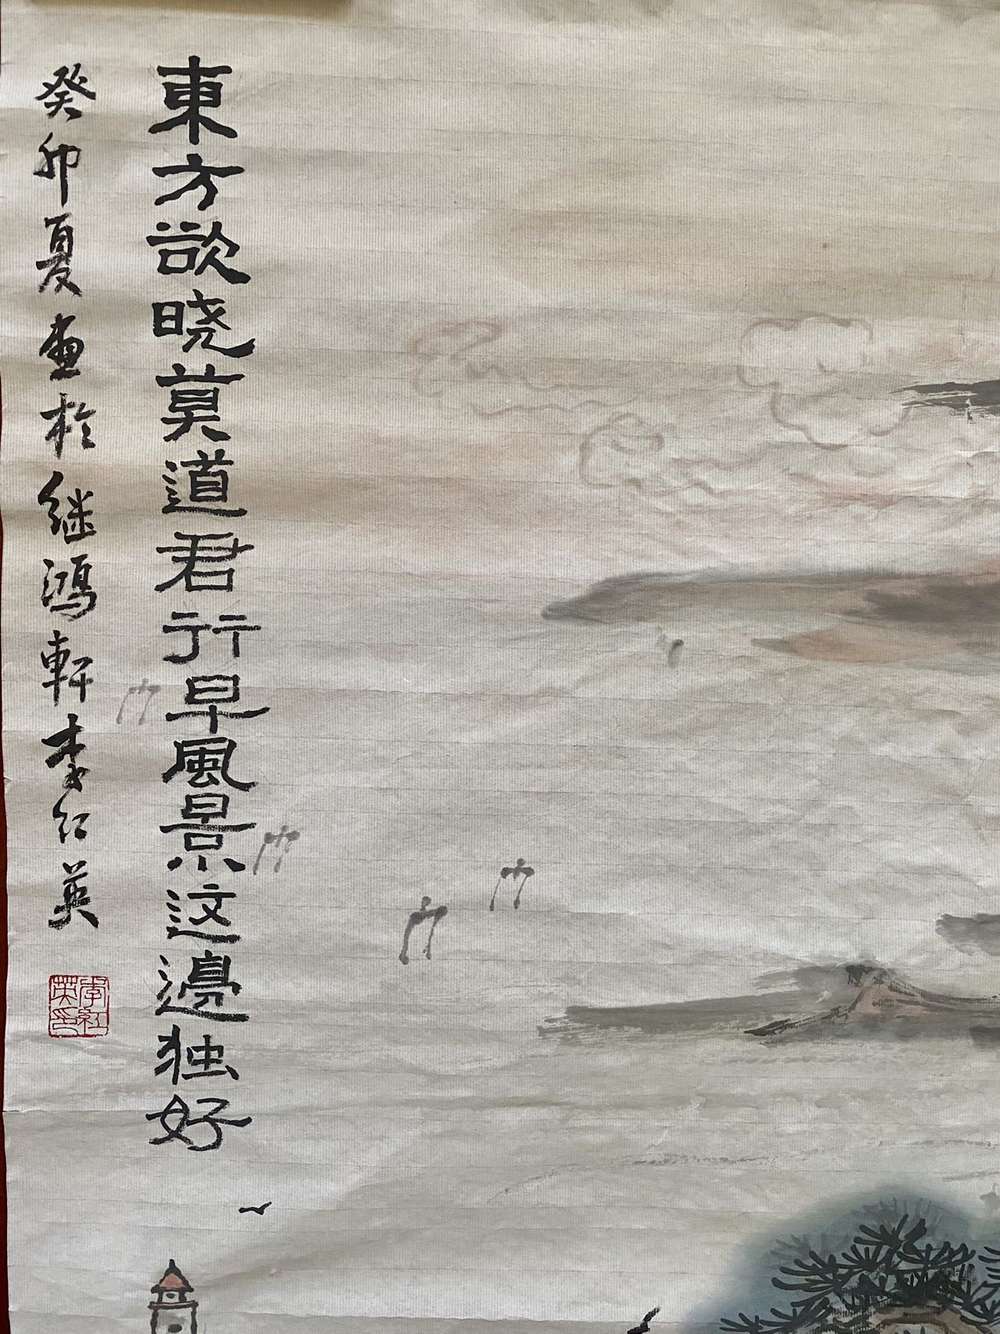 東方欲晓莫道君行早風景这邊独好
癸卯夏画於继鸿軒李红英
李紅英印